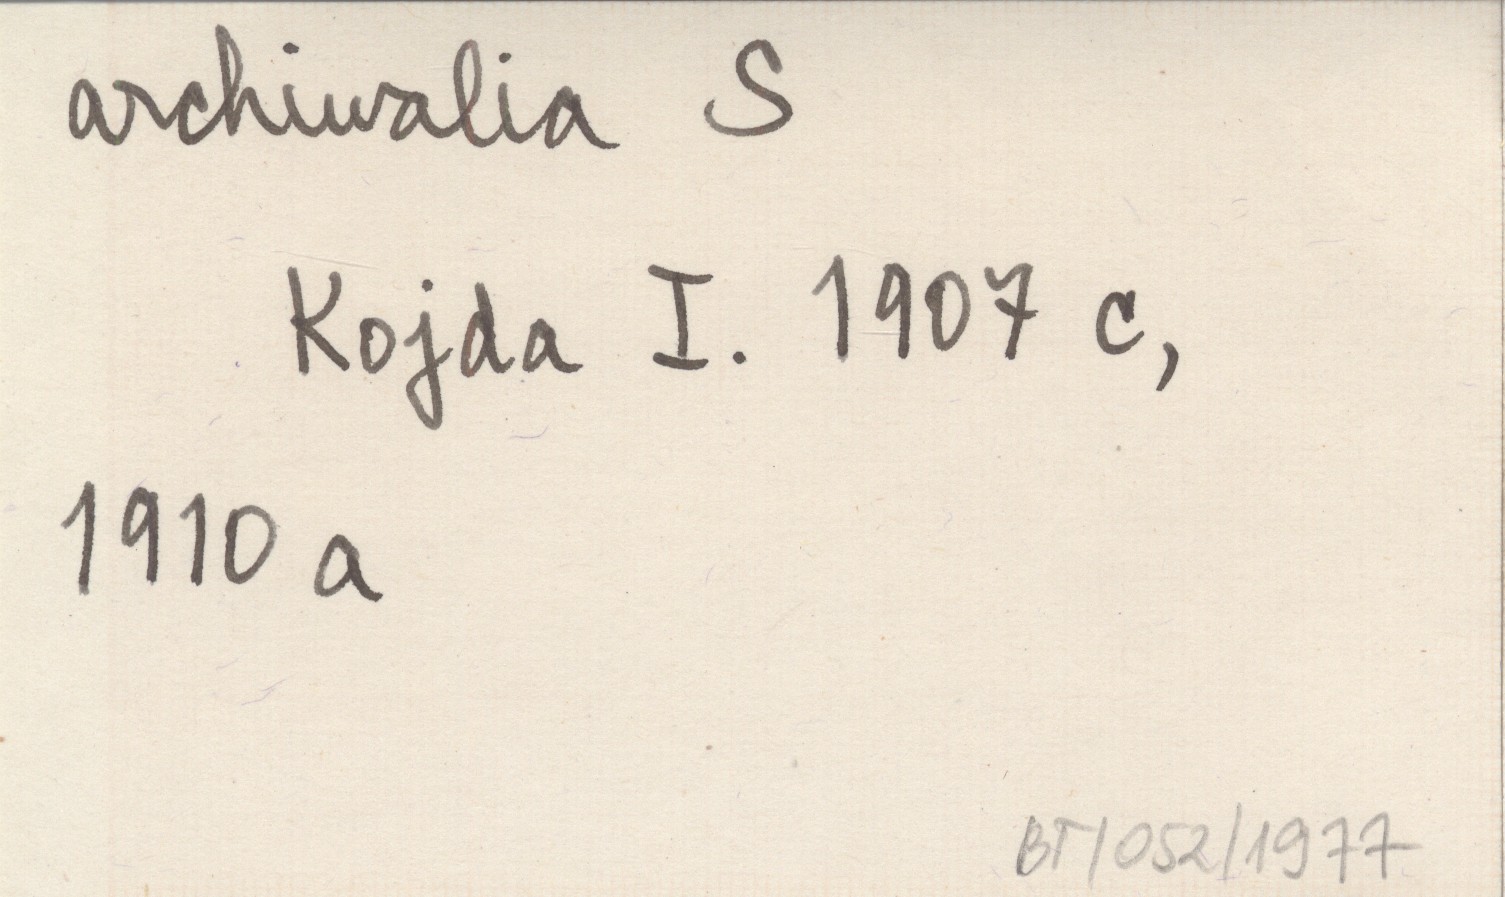 archiwalia S
Kojda I. 1907 c,
1910 a
BT/052/1977